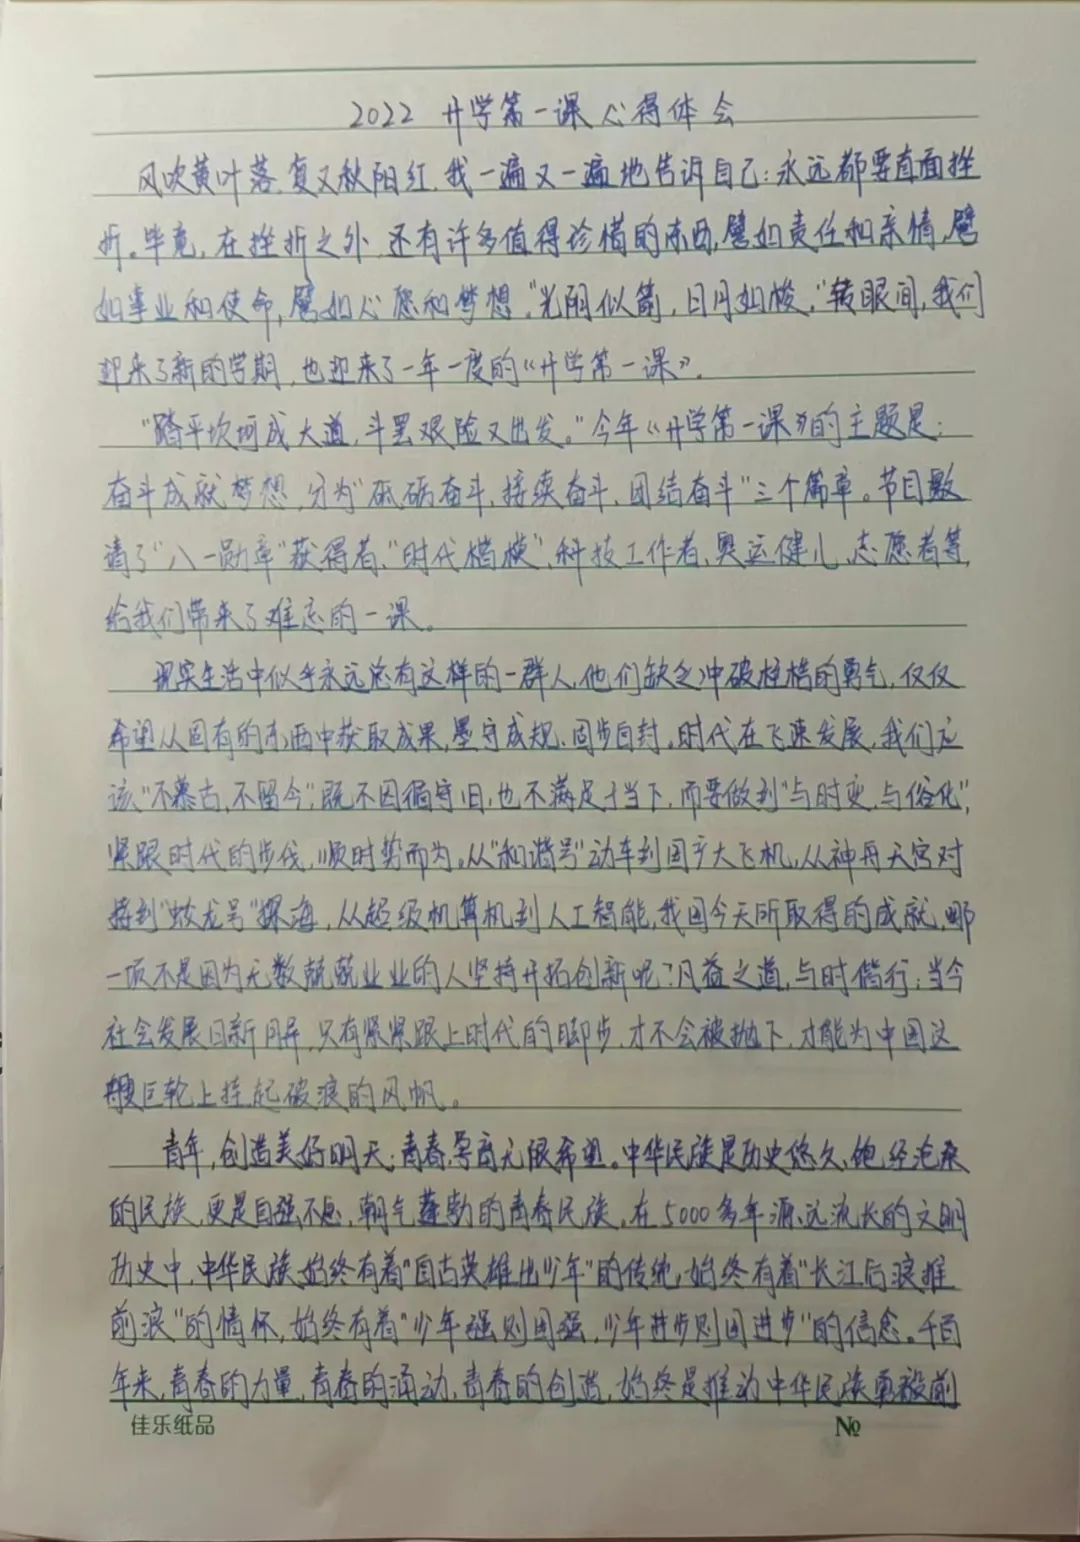 2022 开学第一课心得体会
风吹黄叶落,复又秋阳红,我一遍又一遍地告诉自己:永远都要直面挫
折。毕竟,在挫折之外,还有许多值得珍惜的东西,譬如责任和亲情,譬
如事业和使命,譬如心愿和梦想。“光阴似箭,日月如梭,”转眼间,我们
迎来了新的学期,也迎来了一年一度的《开学第一课》。
“踏平坎坷成大道,斗罢艰险又出发。”今年《开学第一课》的主题是:
奋斗成就梦想,分为“砥砺奋斗、接续奋斗、团结奋斗”三个篇章。节目邀
请了“八一勋章”获得者、“时代楷模”、科技工作者、奥运健儿、志愿者等,
给我们带来了难忘的一课。
现实生活中似乎永远总有这样的一群人,他们缺乏冲破桎梏的勇气,仅仅
希望从固有的东西中获取成果,墨守成规、固步自封。时代在飞速发展,我们应
该“不慕古,不留今”,既不因循守旧,也不满足于当下,而要做到“与时变,与俗化”,
紧跟时代的步伐,顺时势而为。从“和谐号”动车到国产大飞机,从神舟天宫对
接到“蛟龙号”探海,从超级计算机到人工智能,我国今天所取得的成就,哪
一项不是因为无数兢兢业业的人坚持开拓创新呢?凡益之道,与时偕行;当今
社会发展日新月异,只有紧紧跟上时代的脚步,才不会被抛下,才能为中国这
艘巨轮上挂起破浪的风帆。
青年,创造美好明天;青春,孕育无限希望。中华民族是历史悠久、饱经沧桑
的民族,更是自强不息、朝气蓬勃的青春民族。在5000多年源远流长的文明
历史中,中华民族始终有着“自古英雄出少年”的传统,始终有着“长江后浪推
前浪”的情怀,始终有着“少年强则国强,少年进步则国进步”的信念。千百
年来,青春的力量,青春的涌动,青春的创造,始终是推动中华民族勇毅前
佳乐纸品 №